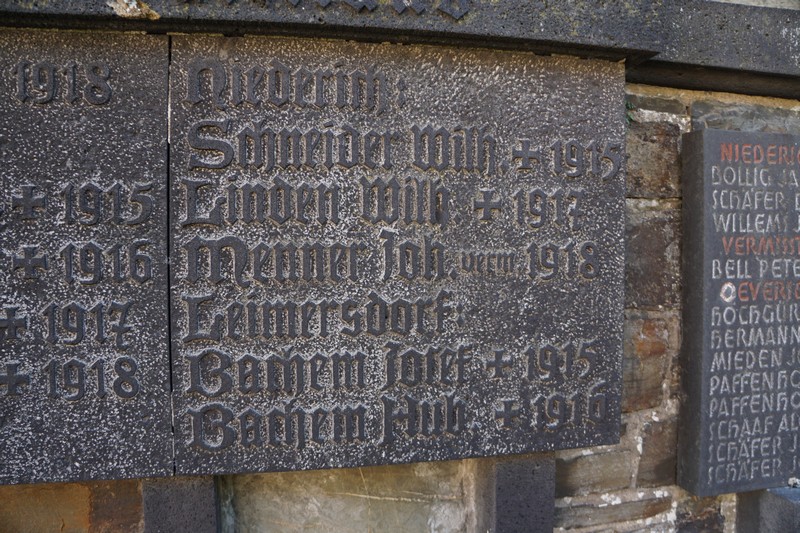 1918
+ 1915
+ 1916
+ 1917
+ 1918
Niederich:
Schneider Wilh. + 1915
Linden Wilh. + 1917
Menner Joh. verm 1918
Leimersdorf:
Bachem Josef + 1915
Bachem Hub. + 1916
NIEDERIC
BOLLIG JA
SCHÄFER
WILLEMS
VERMISST
BELL PETE
OEVERIC
HOCHGÜR
HERMANN
MIEDEN JO
PAFFENHO
PAFFENHO
SCHAAF AL
SCHÄFER J
SCHÄFER